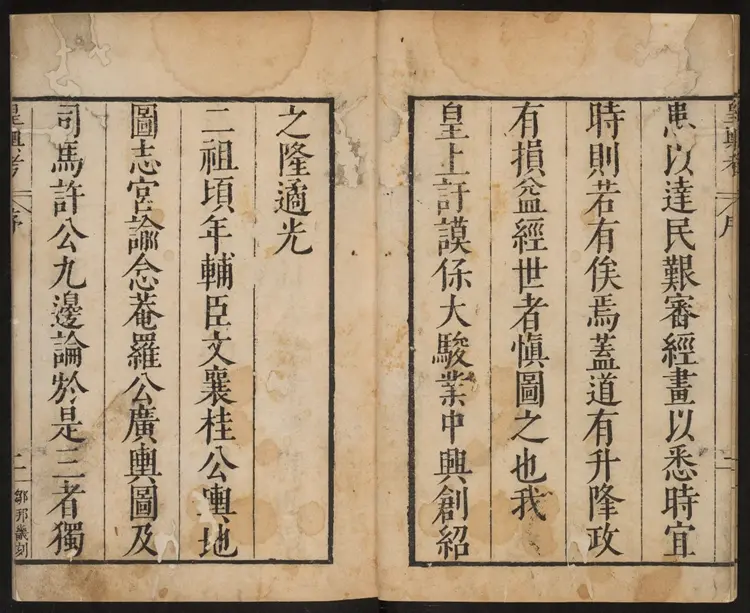 皇輿考 序
患以達民艱審經畫以悉時宜
時則若有俟焉蓋道有升降政
有損益經世者愼圖之也我
皇上訏謨係大駿業中興創紹
之隆適光
二祖頃年輔臣文襄桂公輿地
圖志宮諭念菴羅公廣輿圖及
司馬許公九邊論於是三者獨
皇輿考 序 二 鄒邦畿刻